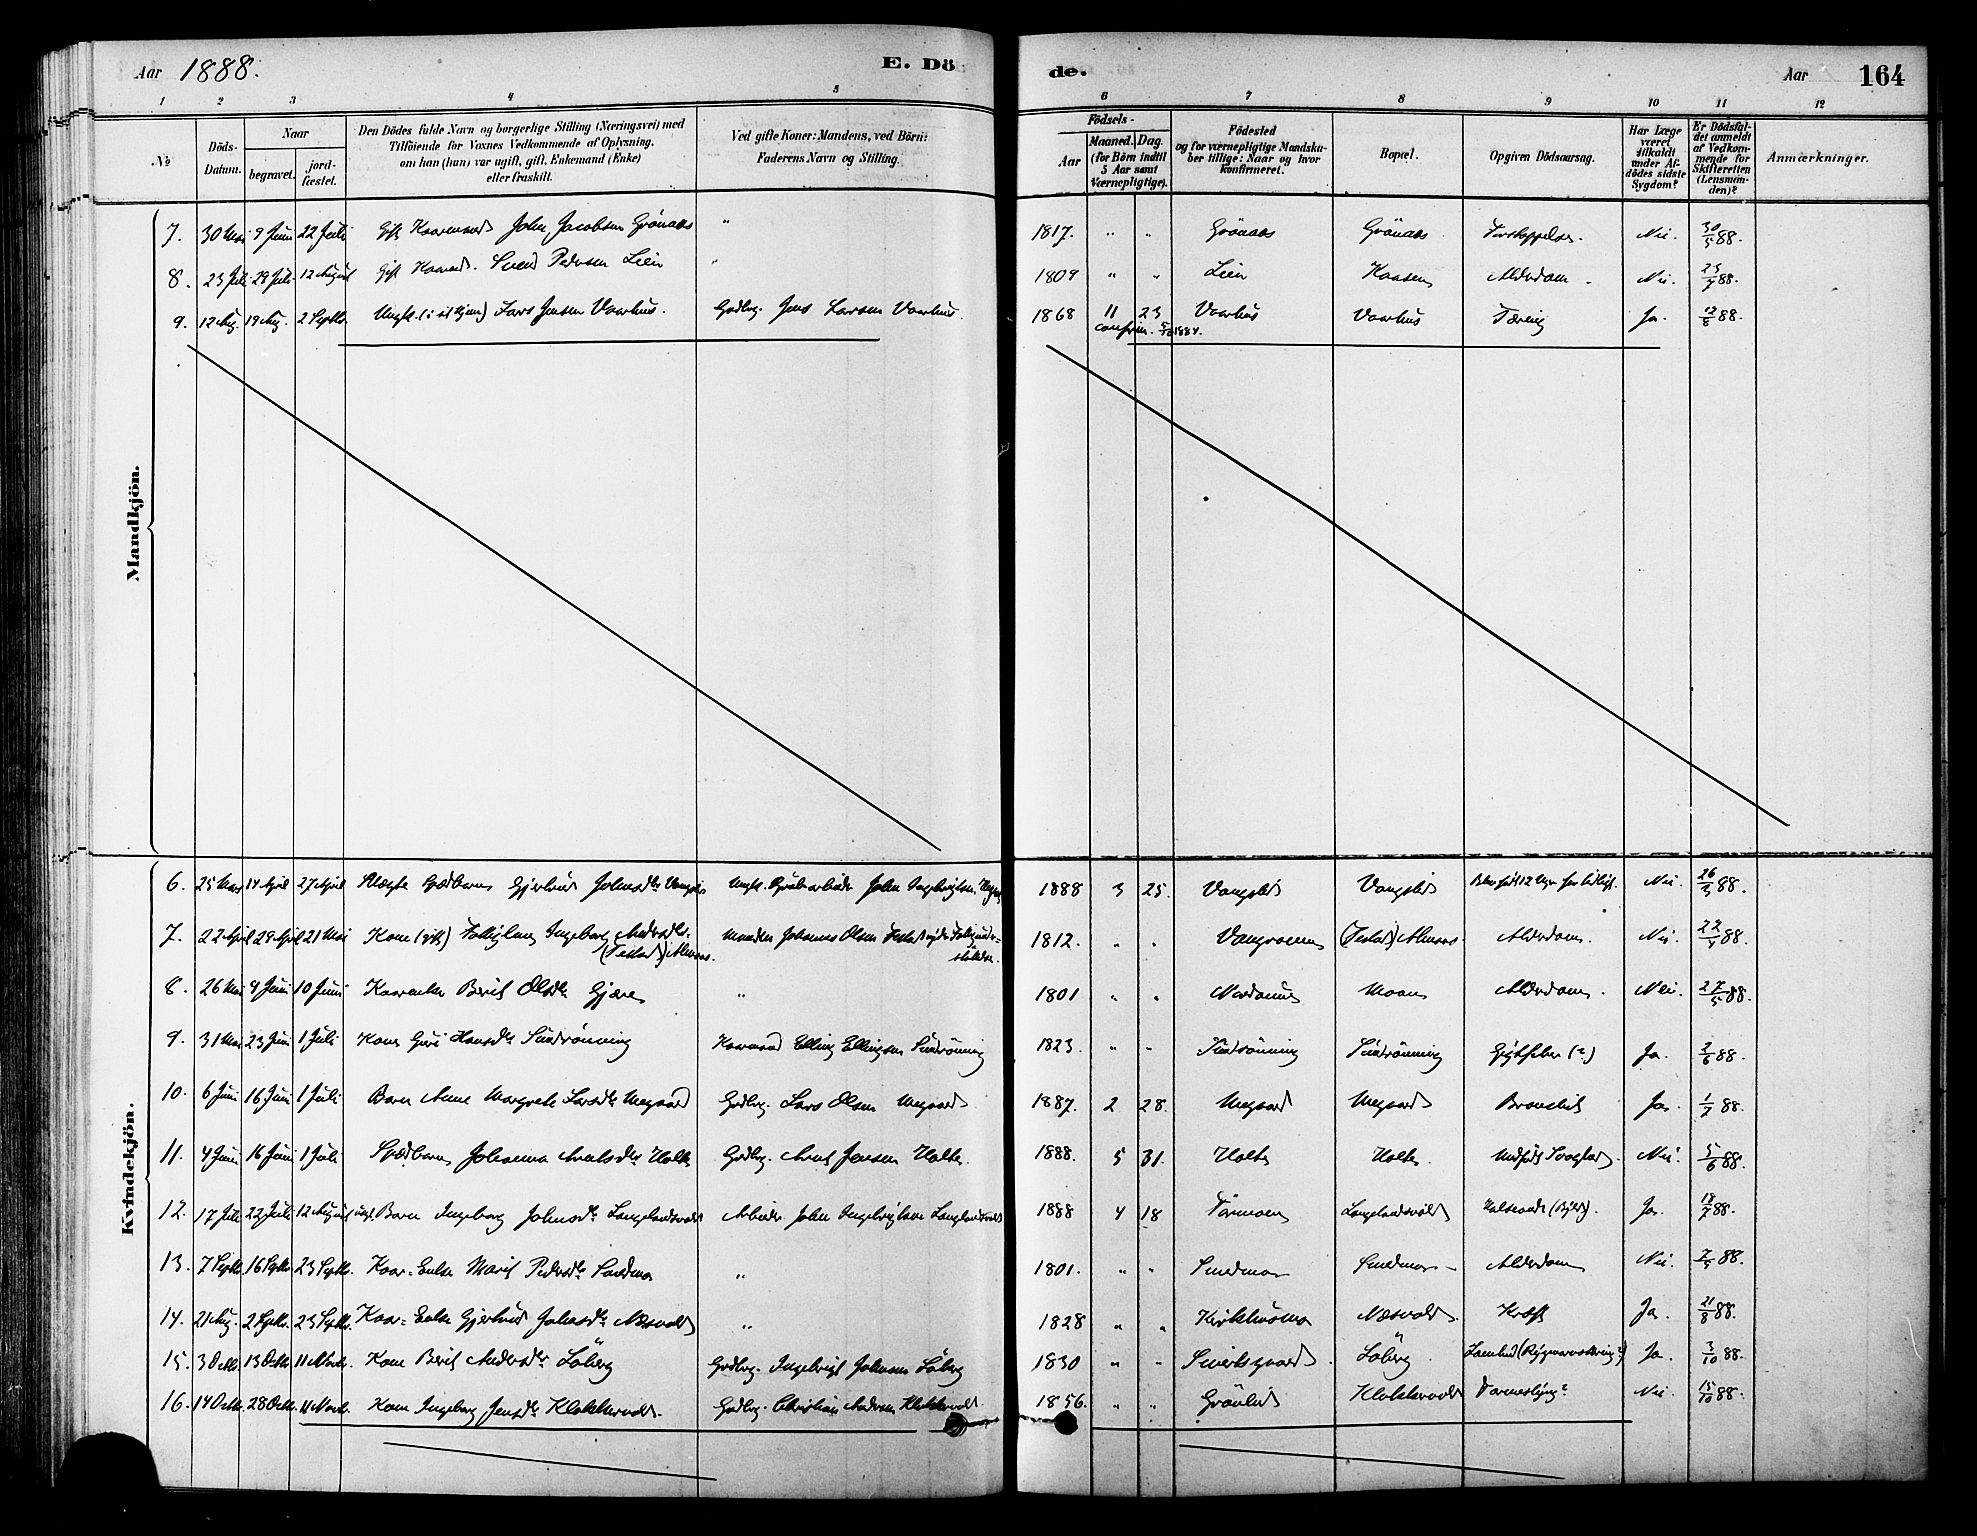 Aar 1888. E. Dö de. Aar 164
1 2 3 4 5 6 7 8 9 10 11 12
No
Döds-Datum.
Naar
begravet.
jordfæstet.
Den Dödes fulde Navn og borgerlige Stilling (Næringsvei) med
Tilföiende for Voxnes Vedkommende af Oplysning,
om han (hun) var ugift, gift, Enkemand (Enke)
eller fraskilt.
Ved gifte Koner: Mandens, ved Börn:
Faderens Navn og Stilling.
Födsels-
Aar
Maaned. Dag.
(for Börn indtil
5 Aar samt
Værnepligtige).
Födested
og for værnepligtige Mandskaber tillige: Naar og hvor
konfirmeret.
Bopæl.
Opgiven Dödsaarsag.
Har Læge
været
tilkaldt
under Afdödes sidste
Sygdom?
Er Dödsfaldet anmeldt
af Vedkommende for
Skifteretten
(Lensmanden)?
Anmærkninger.
Mandkjön.
7. 30 Mai 9 Juni 22 Juli Gift Kaarmand John Jacobsen Grönaas " 1817. " " Grönaas Grönaas Nei. 30/5 88.
8. 23 Juli 29 Juli 12 August Gift Svend Pedersen Lien " 1809 " " Lien Kaasen Alderdom. Nei. 23/7 88.
9. 12 Aug. 19 Aug. 2 Septbr. Ungk. Lars Jensen Vaarhus. Gaardbr. Jens Larsen Vaarhus. 1868 11 23 Vaarhus Vaarhus Tæring Ja. 12/8 88.
confirm. 1884.
Kvindekjön.
6. 25 Mars 14 April 27 April Gjertrud Johnsdtr Vangslid Ungk. John Ingebrigtsen 1888 3 25. Vangslid Vangslid Nei. 26/3 88.
7. 22 April 29 April 21 Mai Kone (gift) Ingeborg Andersdtr. Manden Johannes Olsen 1812. " " Almaas. Alderdom. Nei. 22/4 88.
8. 26 Mai 9 Juni 10 Juni Kaarenke Berit Olsdtr Gjæren " 1801 " " Moan Alderdom. Nei. 27/5 88.
9. 31 Mai 23 Juni 1 Juli Kone Guri Hansdtr Kaarmand Elling Ellingsen 1823. " " Gigtfeber (?) Ja. 2/6 88.
10. 6 Juni 16 Juni 1 Juli Barn Anne Margrete Larsdtr Megaard Gaardbr. Lars Olsen Megaard 1887. 2 28. Megaard Megaard Ja. 1/7 88.
11. 4 Juni 16 Juni 1 Juli Spædbarn Johanna Arntsdtr Holte Gaardbr. Arnt Jensen Holte. 1888. 5 31. Holte Holte. Medfödt Svaghed. Nei. 5/6 88.
12. 17 Juli 22 Juli 12 August Barn Ingeborg Johnsdtr Langelandsvold Arbeider John Ingebrigtsen Langlandsvold 1888 4 18 Langelandsvold Ja. 18/7 88.
13. 7 Septbr. 16 Septbr. 23 Septbr. Kaar-Enke Marit Pedersdtr Smedmo " 1801. " " Smedmo Smedmo Alderdom Nei. 88.
14. 21 Aug. 2 Septbr. 23 Septbr. Kaar-Enke Gjertrud Johnsdtr Næsvold " 1828 " " Kirkhusmo Næsvold Kræft Ja. 21/8 88.
15. 3 Octbr. 13 Octbr. 11 Novbr. Kone Berit Andersdtr Löberg Gaardbr. Ingebrigt Johnsen Löberg 1830 " " Löberg. Ja 3/10 88.
16. 14 Octbr. 28 Octbr. 11 Novb. Kone Ingeborg Jensdtr Klokkervold. Gaardbr. Christian Andersen Klokkervold. 1856. " " Grönlid Klokkervold Nei. 15/10 88.